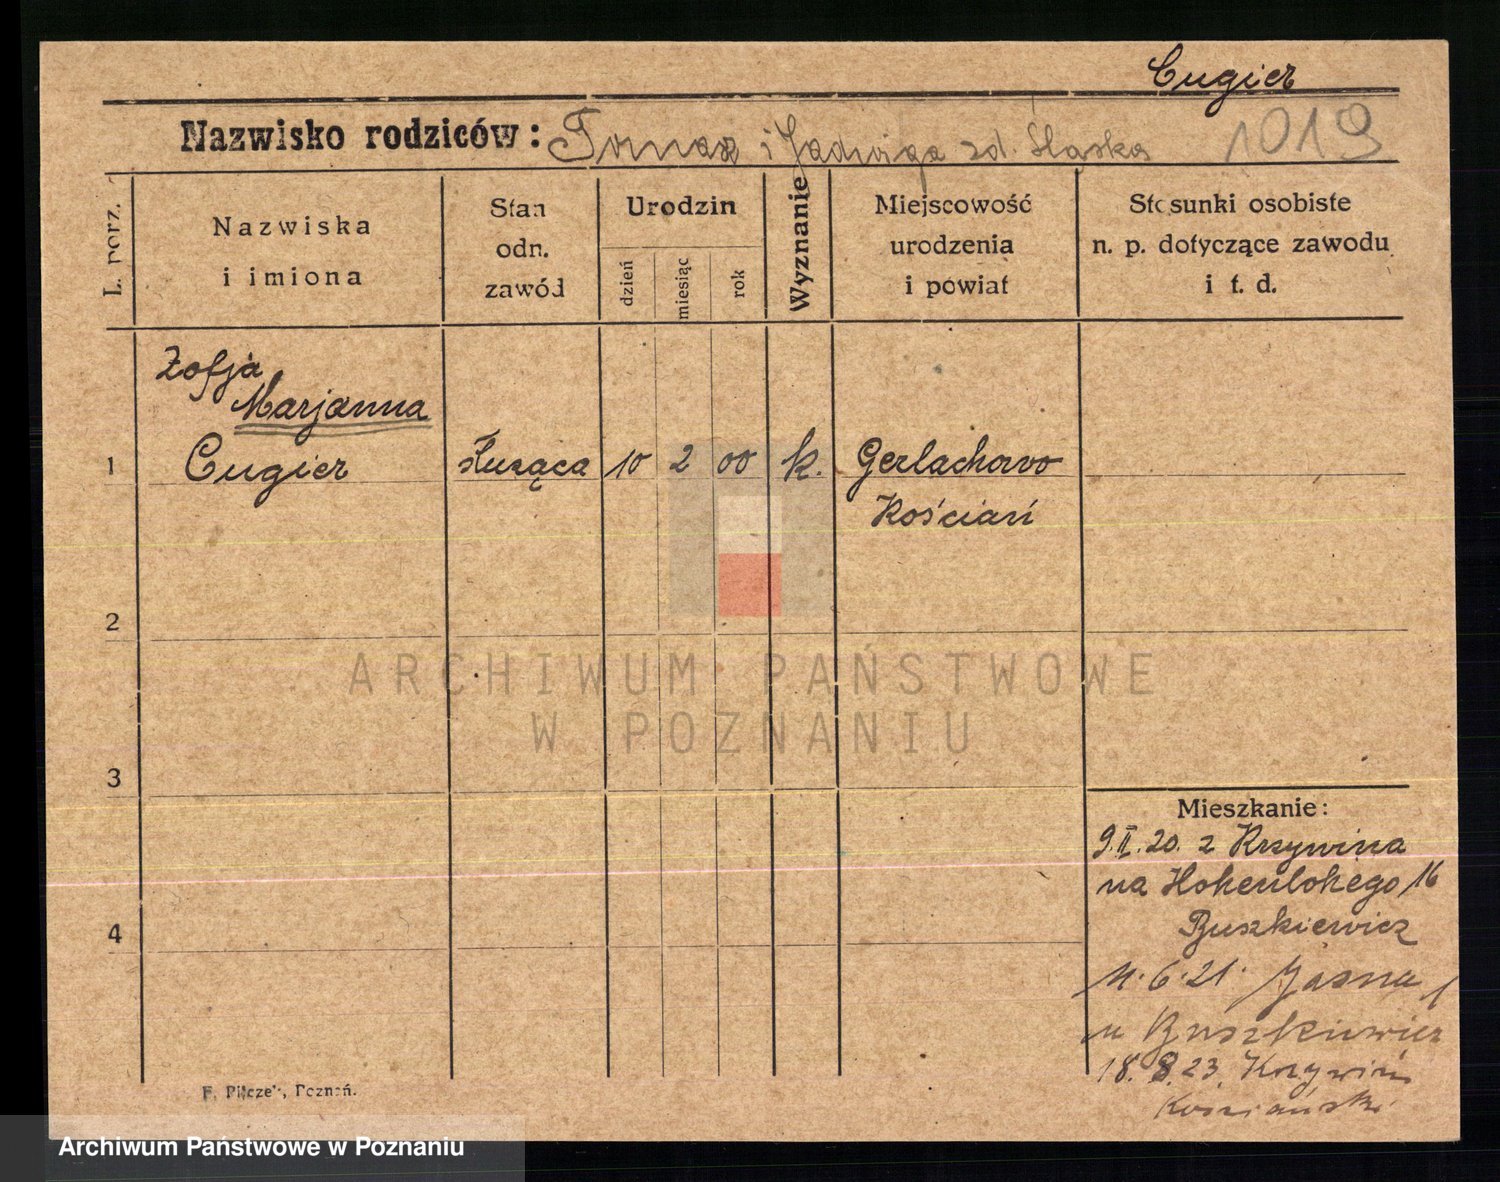 Cugier
Nazwisko rodziców: Tomasz i Jadwiga zd. Śląska 1019
L. porz.
Nazwiska
i imiona
Stan
odn.
zawód
Urodzin
dzień
miesiąc
rok
Wyznanie
Miejscowość
urodzenia
i powiat
Stosunki osobiste
n. p. dotyczące zawodu
i t. d.
Zofja
Marjanna
1 Cugier służąca 10 2 00 k. Gerlachowo
Kościań
2
ARCHIWUM PAŃSTWOWE
W POZNANIU
3
Mieszkanie:
9.II.20. z Krzywina
na Hohenlohego 16
4
Buszkiewicz
11.6.21. Jasna 1
u Buszkiewicz
18.8.23. Krzywiń
Kościański
F. Pilczek, Poznań.
Archiwum Państwowe w Poznaniu